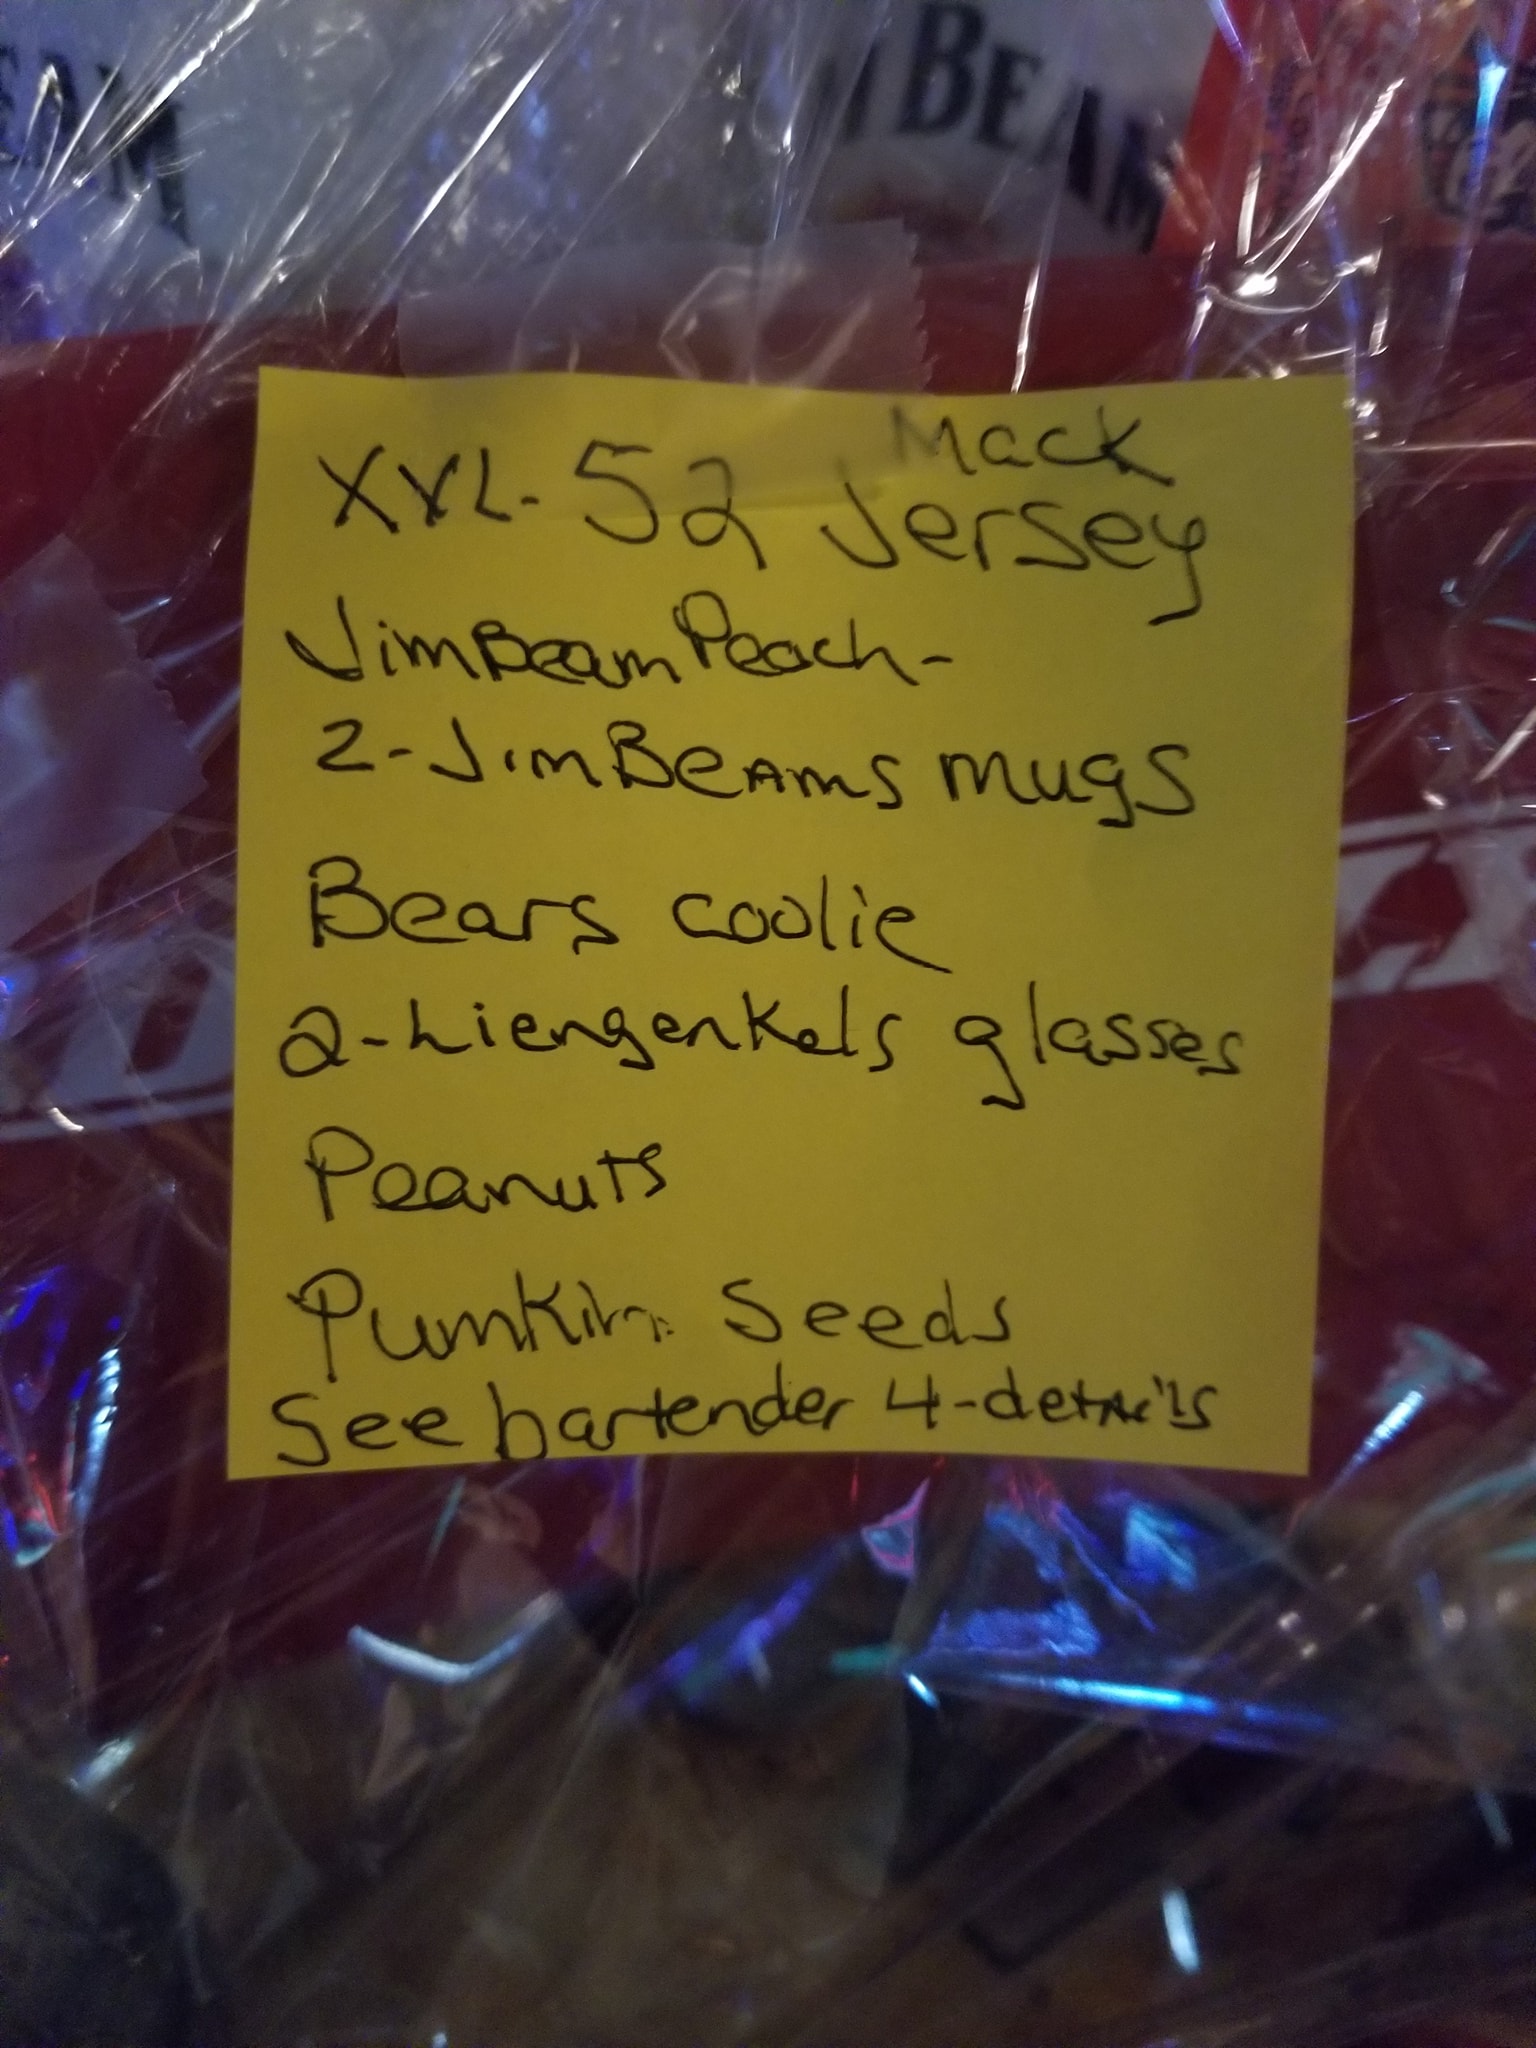 EAM
M BEAM
XXL- 52 Mack Jersey
JimBeam Peach-
2-JimBEAMS mugs
Bears coolie
2-Liengenkels glasses
Peanuts
Pumkin Seeds
See bartender 4-details